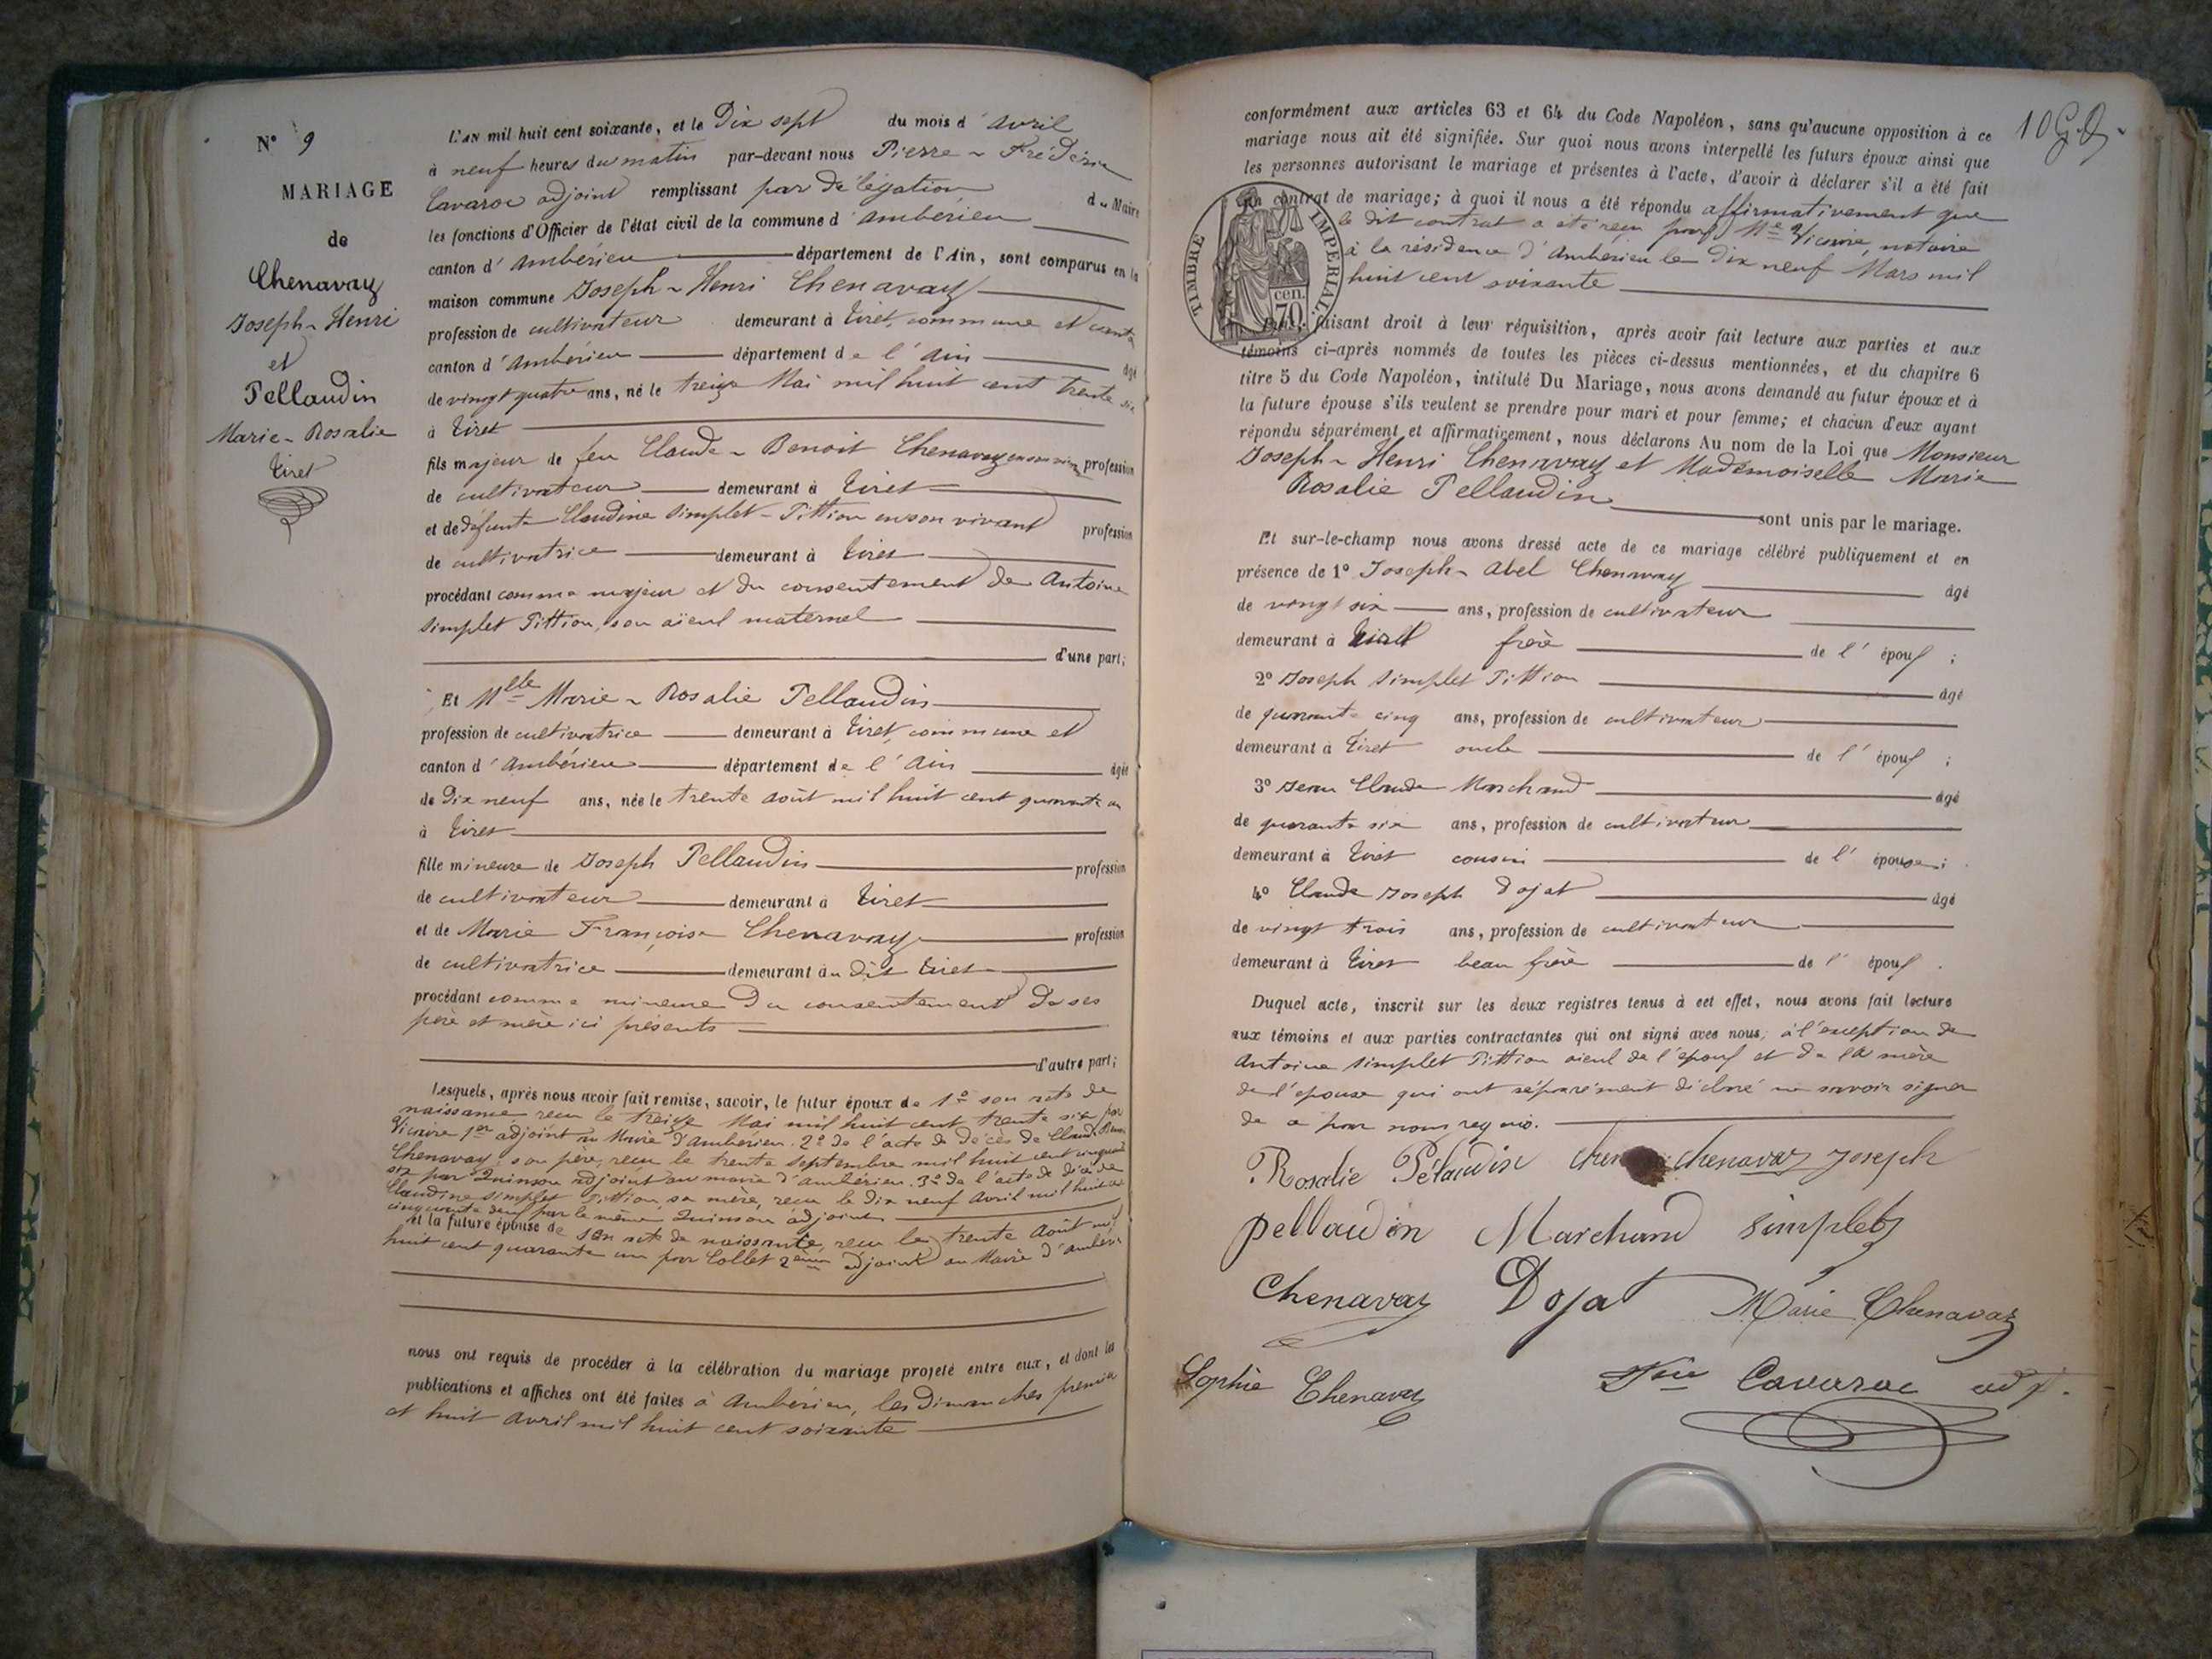 N° 9
MARIAGE
de
Chenavaz
Joseph-Henri
et
Pellaudin
Marie-Rosalie
Tiret
L'AN mil huit cent soixante, et le Dix sept du mois d'avril
à neuf heures du matin par-devant nous Pierre-Frédéric
Cavaroc adjoint remplissant par délégation du Maire
les fonctions d'Officier de l'état civil de la commune d'ambérieu
canton d'ambérieu département de l'Ain, sont comparus en la
maison commune Joseph-Henri Chenavaz
profession de cultivateur demeurant à Tiret, commune et
canton d'ambérieu département de l'ain âgé
de vingt quatre ans, né le treize Mai mil huit cent trente six
à Tiret
fils majeur de feu Claude-Benoit Chenavaz en son vivant profession
de cultivateur demeurant à Tiret
et de défunte Claudine Simplet-Pittion en son vivant profession
de cultivatrice demeurant à Tiret
procédant comme majeur et du consentement de Antoine
Simplet Pittion, son aïeul maternel
d'une part;
Et Mlle Marie-Rosalie Pellaudin
profession de cultivatrice demeurant à Tiret, commune et
canton d'ambérieu département de l'ain âgée
de dix neuf ans, née le trente août mil huit cent quarante un
à Tiret
fille mineure de Joseph Pellaudin profession
de cultivateur demeurant à Tiret
et de Marie Françoise Chenavaz profession
de cultivatrice demeurant au dit Tiret
procédant comme mineure du consentement de ses
père et mère ici présents
d'autre part;
Lesquels, après nous avoir fait remise, savoir, le futur époux de 1° son acte de
naissance reçu le treize Mai mil huit cent trente six par
Vicaire 1er adjoint au Maire d'ambérieu. 2° de l'acte de décès de Claude Benoit
Chenavaz, son père, reçu le trente septembre mil huit cent cinquante
six par Quinson adjoint au maire d'ambérieu. 3° de l'acte de décès de
Claudine Simplet Pittion, sa mère, reçu le dix neuf avril mil huit cent
cinquante deux par le même Quinson adjoint
et la future épouse de son acte de naissance, reçu le trente août mil
huit cent quarante un par Collet 2ème adjoint au Maire d'ambérieu
nous ont requis de procéder à la célébration du mariage projeté entre eux, et dont les
publications et affiches ont été faites à ambérieu, les dimanches premier
et huit avril mil huit cent soixante
10
conformément aux articles 63 et 64 du Code Napoléon, sans qu'aucune opposition à ce
mariage nous ait été signifiée. Sur quoi nous avons interpellé les futurs époux ainsi que
les personnes autorisant le mariage et présentes à l'acte, d'avoir à déclarer s'il a été fait
un contrat de mariage; à quoi il nous a été répondu affirmativement que
le dit contrat a été reçu par Me Vicaire, notaire
à la résidence d'ambérieu le dix neuf Mars mil
huit cent soixante
TIMBRE IMPERIAL
cen. 70
faisant droit à leur réquisition, après avoir fait lecture aux parties et aux
témoins ci-après nommés de toutes les pièces ci-dessus mentionnées, et du chapitre 6
titre 5 du Code Napoléon, intitulé Du Mariage, nous avons demandé au futur époux et à
la future épouse s'ils veulent se prendre pour mari et pour femme; et chacun d'eux ayant
répondu séparément et affirmativement, nous déclarons Au nom de la Loi que Monsieur
Joseph-Henri Chenavaz et Mademoiselle Marie
Rosalie Pellaudin
sont unis par le mariage.
Et sur-le-champ nous avons dressé acte de ce mariage célébré publiquement et en
présence de 1° Joseph-abel Chenavaz âgé
de vingt six ans, profession de cultivateur
demeurant à Tiret frère de l'époux;
2° Joseph Simplet Pittion âgé
de quarante cinq ans, profession de cultivateur
demeurant à Tiret oncle de l'époux;
3° Jean Claude Marchand âgé
de quarante six ans, profession de cultivateur
demeurant à Tiret cousin de l'épouse;
4° Claude Joseph Dojat âgé
de vingt trois ans, profession de cultivateur
demeurant à Tiret beau frère de l'époux.
Duquel acte, inscrit sur les deux registres tenus à cet effet, nous avons fait lecture
aux témoins et aux parties contractantes qui ont signé avec nous, à l'exception de
Antoine Simplet Pittion aïeul de l'époux et de la mère
de l'épouse qui ont séparément déclaré ne savoir signer
de ce par nous requis.
Rosalie Pélaudin chenavaz Joseph
pellaudin Marchand Simplet
Chenavaz Dojat Marie Chenavaz
Sophie Chenavaz Cavaroc adj.